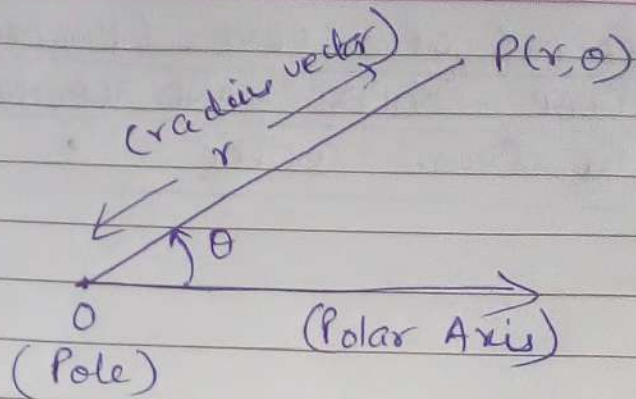 (radius vector)
P(r, θ)
r
θ
O
(Polar Axis)
(Pole)